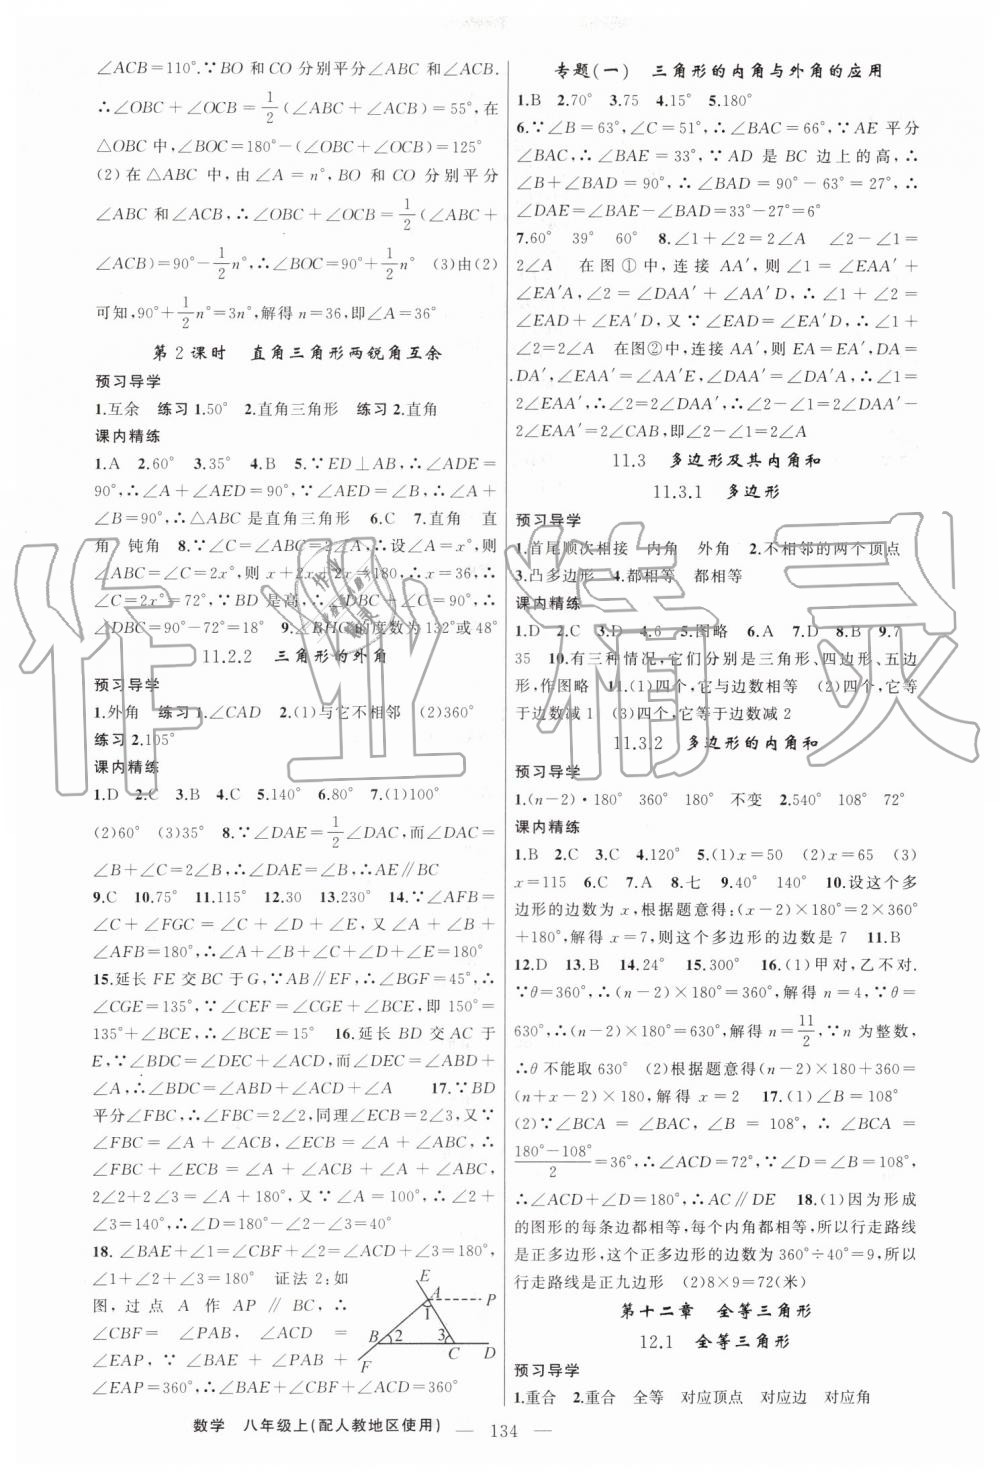 ∠ACB=110°.∵BO 和 CO 分别平分∠ABC 和∠ACB.
∴∠OBC+∠OCB=1/2(∠ABC+∠ACB)=55°,在
△OBC 中,∠BOC=180°-(∠OBC+∠OCB)=125°
(2)在△ABC 中,由∠A=n°,BO 和 CO 分别平分
∠ABC 和∠ACB,∴∠OBC+∠OCB=1/2(∠ABC+
∠ACB)=90°-1/2n°,∴∠BOC=90°+1/2n° (3)由(2)
可知,90°+1/2n°=3n°,解得 n=36,即∠A=36°
第 2 课时 直角三角形两锐角互余
预习导学
1.互余 练习 1.50° 2.直角三角形 练习 2.直角
课内精练
1.A 2.60° 3.35° 4.B 5.∵ED⊥AB,∴∠ADE=
90°,∴∠A+∠AED=90°,∵∠AED=∠B,∴∠A+
∠B=90°,∴△ABC 是直角三角形 6.C 7.直角 直
角 钝角 8.∵∠C=∠ABC=2∠A,∴设∠A=x°,则
∠ABC=∠C=2x°,则 x+2x+2x=180,∴x=36,∴
∠C=2x°=72°,∵BD 是高,∴∠DBC+∠C=90°,∴
∠DBC=90°-72°=18° 9.∠BHC的度数为132°或48°
11.2.2 三角形的外角
预习导学
1.外角 练习 1.∠CAD 2.(1)与它不相邻 (2)360°
练习 2.105°
课内精练
1.D 2.C 3.B 4.C 5.140° 6.80° 7.(1)100°
(2)60° (3)35° 8.∵∠DAE=1/2∠DAC,而∠DAC=
∠B+∠C=2∠B,∴∠DAE=∠B,∴AE∥BC
9.C 10.75° 11.115° 12.30 13.230° 14.∵∠AFB=
∠C+∠FGC=∠C+∠D+∠E,又∠A+∠B+
∠AFB=180°,∴∠A+∠B+∠C+∠D+∠E=180°
15.延长 FE 交 BC 于 G,∵AB∥EF,∴∠BGF=45°,∴
∠CGE=135°,∵∠CEF=∠CGE+∠BCE,即 150°=
135°+∠BCE,∴∠BCE=15° 16.延长 BD 交 AC 于
E,∵∠BDC=∠DEC+∠ACD,而∠DEC=∠ABD+
∠A,∴∠BDC=∠ABD+∠ACD+∠A 17.∵BD
平分∠FBC,∴∠FBC=2∠2,同理∠ECB=2∠3,又∵
∠FBC=∠A+∠ACB,∠ECB=∠A+∠ABC,∴
∠FBC+∠ECB=∠A+∠ACB+∠A+∠ABC,∴
2∠2+2∠3=∠A+180°,又∵∠A=100°,∴∠2+
∠3=140°,∴∠D=180°-∠2-∠3=40°
18. ∠BAE+∠1=∠CBF+∠2=∠ACD+∠3=180°,
∠1+∠2+∠3=180° 证法 2:如
图,过点 A 作 AP∥BC,∴
∠CBF=∠PAB,∠ACD=
∠EAP,∵∠BAE+∠PAB+
∠EAP=360°,∴∠BAE+∠CBF+∠ACD=360°
E
A
P
1
B
2
3
C
D
F
专题(一) 三角形的内角与外角的应用
1.B 2.70° 3.75 4.15° 5.180°
6.∵∠B=63°,∠C=51°,∴∠BAC=66°,∵AE 平分
∠BAC,∴∠BAE=33°,∵AD 是 BC 边上的高,∴
∠B+∠BAD=90°,∴∠BAD=90°-63°=27°,∴
∠DAE=∠BAE-∠BAD=33°-27°=6°
7.60° 39° 60° 8.∠1+∠2=2∠A ∠2-∠1=
2∠A 在图①中,连接 AA′,则∠1=∠EAA′+
∠EA′A,∠2=∠DAA′+∠AA′D,∴∠1+∠2=
∠EAD+∠EA′D,又∵∠EAD=∠EA′D,∴∠1+
∠2=2∠A 在图②中,连接 AA′,则 EA=EA′,DA=
DA′,∠EAA′=∠AA′E,∠DAA′=∠AA′D,∴∠1=
2∠EAA′,∴∠2=2∠DAA′,∴∠2-∠1=2∠DAA′-
2∠EAA′=2∠CAB,即∠2-∠1=2∠A
11.3 多边形及其内角和
11.3.1 多边形
预习导学
1.首尾顺次相接 内角 外角 2.不相邻的两个顶点
3.凸多边形 4.都相等 都相等
课内精练
1.D 2.C 3.D 4.6 5.图略 6.A 7.D 8.B 9.7
35 10.有三种情况,它们分别是三角形、四边形、五边
形,作图略 11.(1)四个,它与边数相等 (2)四个,它等
于边数减 1 (3)四个,它等于边数减 2
11.3.2 多边形的内角和
预习导学
1.(n-2)·180° 360° 180° 不变 2.540° 108° 72°
课内精练
1.B 2.C 3.C 4.120° 5.(1)x=50 (2)x=65 (3)
x=115 6.C 7.A 8.七 9.40° 140° 10.设这个多
边形的边数为 x,根据题意得:(x-2)×180°=2×360°
+180°,解得 x=7,则这个多边形的边数是 7 11.B
12.D 13.B 14.24° 15.300° 16.(1)甲对,乙不对.
∵θ=360°,∴(n-2)×180°=360°,解得 n=4,∵θ=
630°,∴(n-2)×180°=630°,解得 n=11/2,∵n 为整数,
∴θ 不能取 630° (2)根据题意得(n-2)×180+360=
(n+x-2)×180,解得 x=2 17.(1)∠B=108°
(2)∵∠BCA=∠BAC,∠B=108°,∴∠BCA=
(180°-108°)/2=36°,∴∠ACD=72°,∵∠D=∠B=108°,
∴∠ACD+∠D=180°,∴AC∥DE 18.(1)因为形成
的图形的每条边都相等,每个内角都相等,所以行走路线
是正多边形,这个正多边形的边数为 360°÷40°=9,所以
行走路线是正九边形 (2)8×9=72(米)
第十二章 全等三角形
12.1 全等三角形
预习导学
1.重合 2.重合 全等 对应顶点 对应边 对应角
数学 八年级上(配人教地区使用) — 134 —
作业精灵